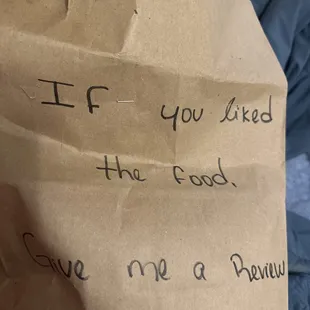 If you liked
the food.
Give me a Review